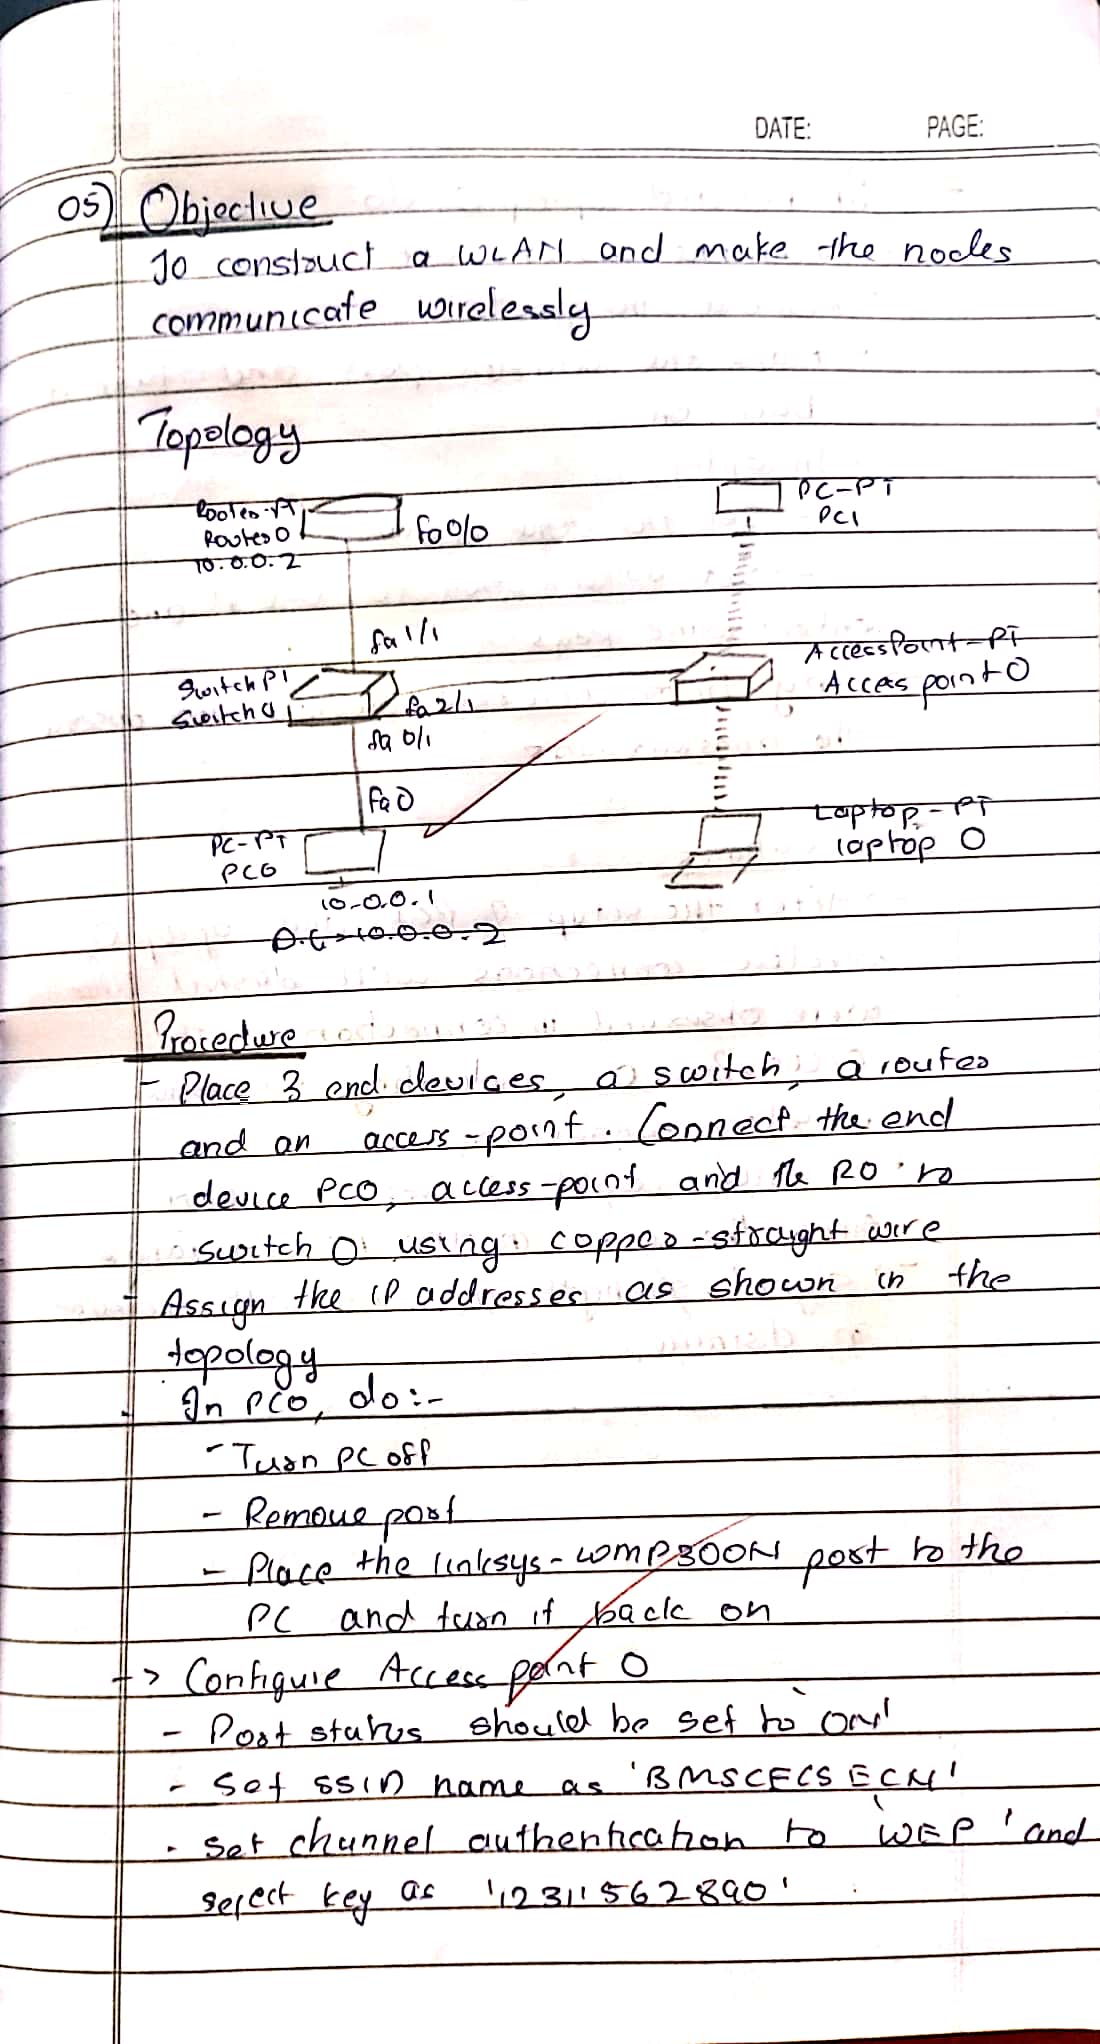 DATE: PAGE:
05) Objective
To construct a WLAN and make the nodes
communicate wirelessly
Topology
Router-PT
Router0
10.0.0.2
fa0/0
PC-PT
PC1
fa 1/1
Switch PT
Switch 0
fa2/1
fa 0/1
AccessPoint-PT
Acces point 0
fa0
PC-PT
PC0
10.0.0.1
D.G → 10.0.0.2
Laptop-PT
laptop 0
Procedure
- Place 3 end devices, a switch, a router
and an access-point. Connect the end
device PC0, access-point and the R0 to
switch 0 using copper-straight wire
- Assign the IP addresses as shown in the
topology
- In PC0, do:-
- Turn PC off
- Remove port
- Place the linksys-WMP300N port to the
PC and turn it back on
-> Configure Access point 0
- Port status should be set to 'on'
- Set SSID name as 'BMSCECSECN'
- Set channel authentication to 'WEP' and
select key as